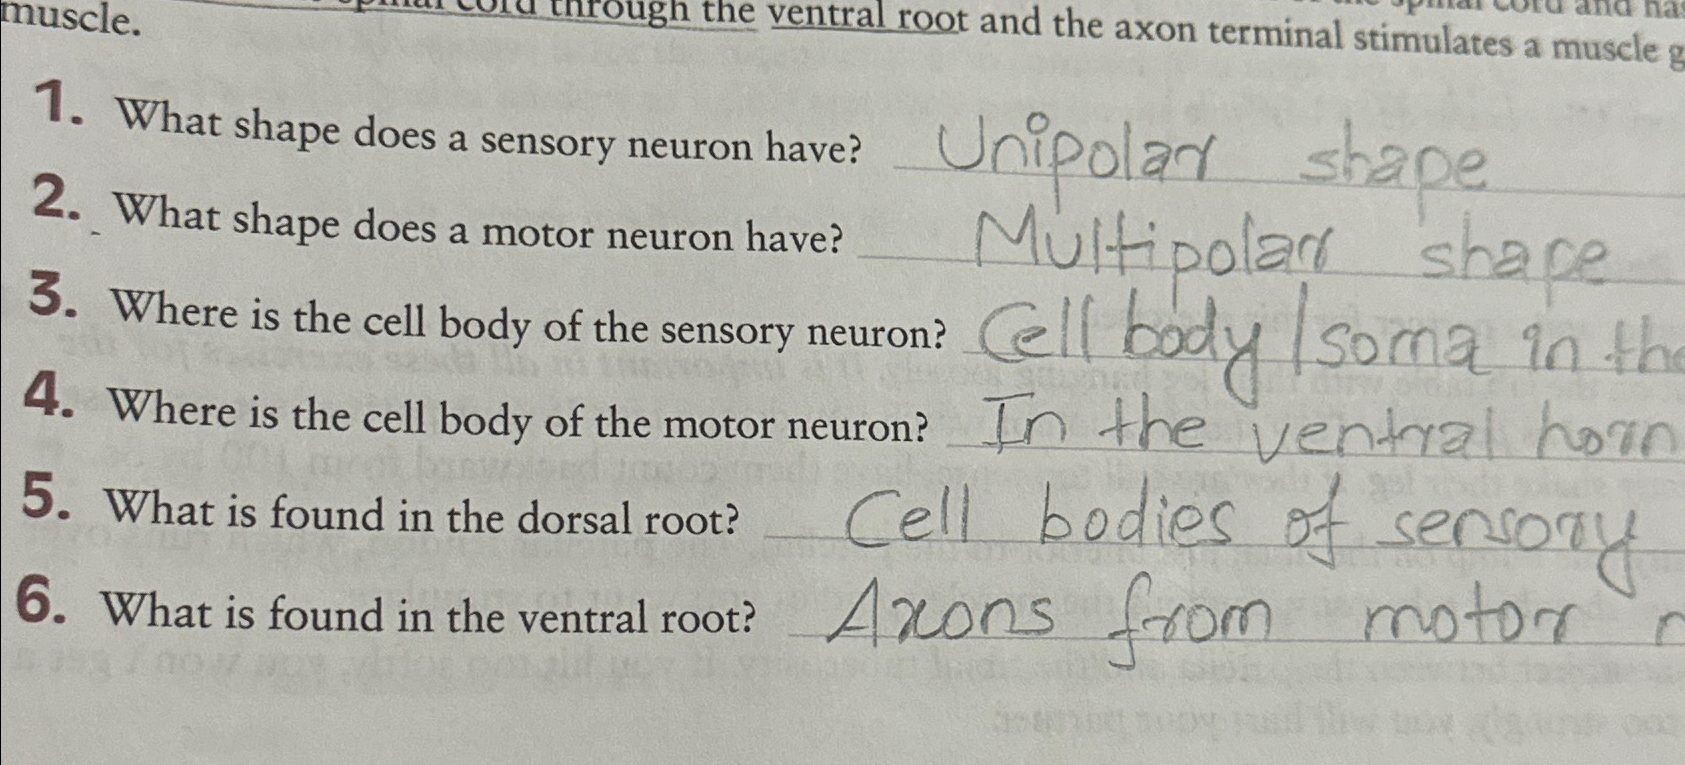 spinal cord through the ventral root and the axon terminal stimulates a muscle
muscle.
1. What shape does a sensory neuron have? Unipolar shape
2. What shape does a motor neuron have? Multipolar shape
3. Where is the cell body of the sensory neuron? Cell body/soma in the
4. Where is the cell body of the motor neuron? In the ventral horn
5. What is found in the dorsal root? Cell bodies of sensory
6. What is found in the ventral root? Axons from motor